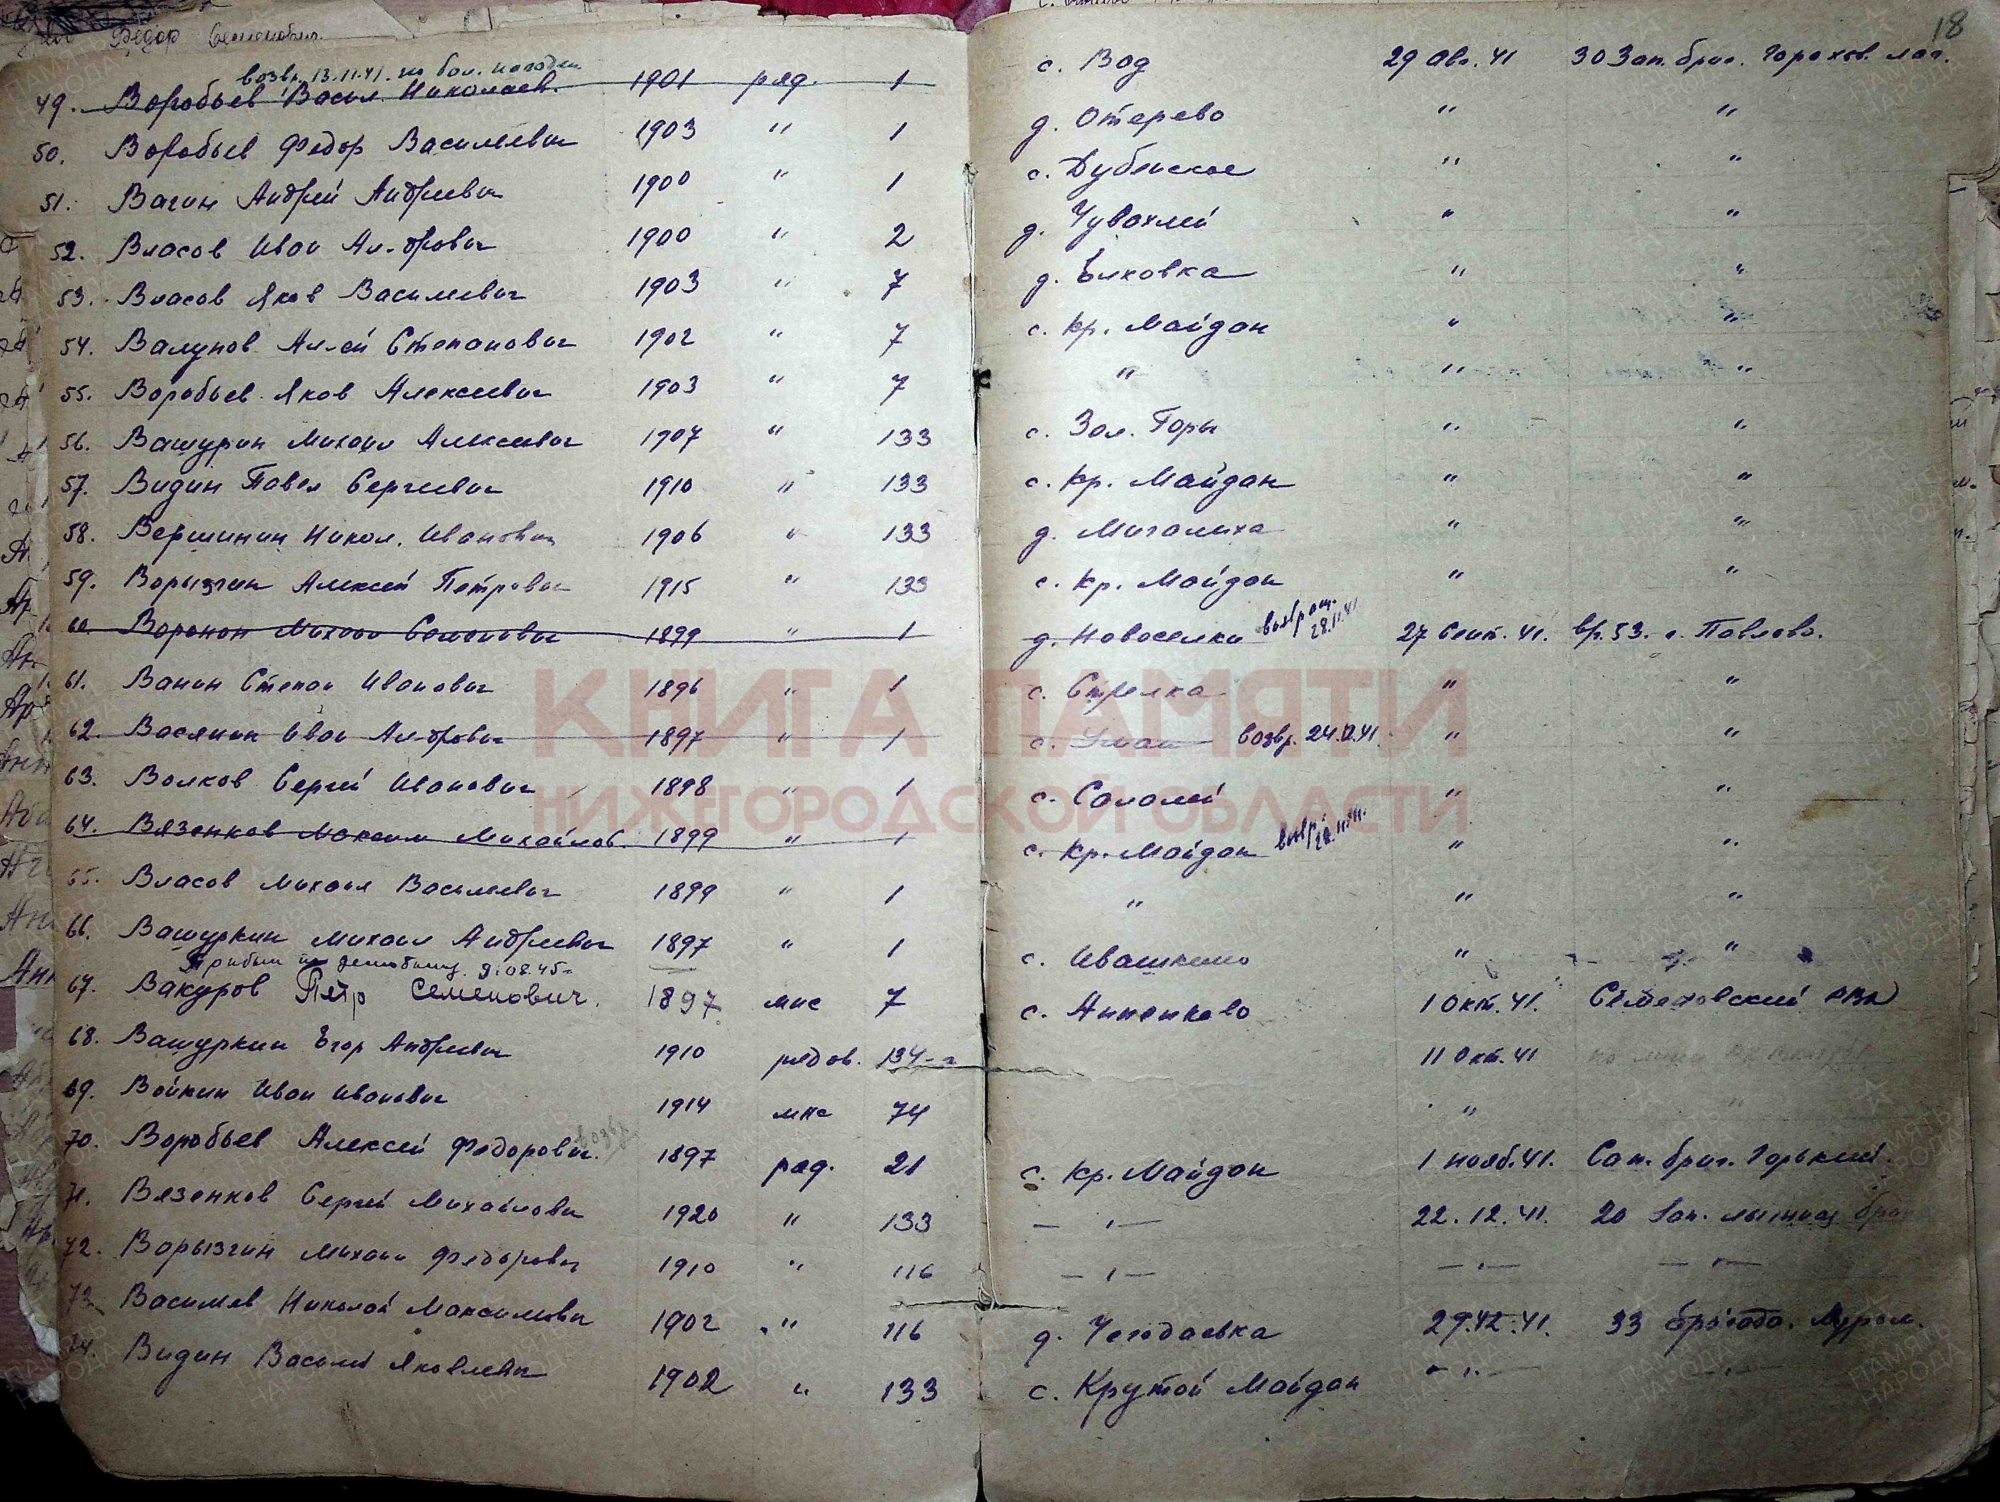 18
Федор Семенович
возвр. 13.11.41. по бол.
49. Воробьев Васил. Николаев. 1901 ряд. 1 с. Вад 29 Авг. 41 30 Зап. бриг. Горохов. лаг.
50. Воробьев Федор Василевич 1903 " 1 д. Отерево " "
51. Вагин Андрей Андреевич 1900 " 1 с. Дубенское " "
52. Власов Иван Ал-дрович 1900 " 2 д. Чувахлей " "
53. Власов Яков Василевич 1903 " 7 д. Быковка " "
54. Валунов Ал-ей Степанович 1902 " 7 с. Кр. Майдан " "
55. Воробьев Яков Алексеевич 1903 " 7 " " "
56. Вашурин Михаил Алексеевич 1907 " 133 с. Зол. Горы " "
57. Видин Павел Сергеевич 1910 " 133 с. Кр. Майдан " "
58. Вершинин Никол. Иванович 1906 " 133 д. Мигалиха " "
59. Ворызгин Алексей Петрович 1915 " 133 с. Кр. Майдан " "
60. Воронон Михаил Семенович 1899 " 1 д. Новоселки возвращ. 28.11.41 27 Сент. 41. вр. 53. г. Павлово.
61. Ванин Степан Иванович 1896 " 1 с. Стрелка " "
62. Васянин Иван Ал-дрович 1897 " 1 с. Умай возвр. 24.12.41. " "
63. Волков Сергей Иванович 1898 " 1 с. Салалей " "
64. Вязенков Максим Михайлов. 1899 " 1 с. Кр. Майдан возвр. 28.11.41. " "
65. Власов Михаил Василевич 1899 " 1 " " "
66. Вашуркин Михаил Андреевич 1897 " 1 с. Ивашкино " "
Прибыл по демобилиз. 9.08.45г
67. Вакуров Петр Семенович. 1897 мнс 7 с. Анненково 1 Окт. 41. Семеновский РВК
68. Вашуркин Егор Андреевич 1910 рядов. 134-г 11 Окт. 41
69. Войкин Иван Иванович 1914 мнс 74 " "
70. Воробьев Алексей Федорович. возвр 1897 ряд. 21 с. Кр. Майдан 1 нояб. 41. Сап. бриг. Горький.
71. Вязенков Сергей Михайлович 1920 " 133 — " — 22.12.41. 20 Зап. лыжная бриг
72. Ворызгин Михаил Федорович 1910 " 116 — " — — " — — " —
73. Василев Николай Максимович 1902 " 116 д. Чегодаевка 29.12.41. 33 бригада. Муром.
74. Видин Василий Яковлевич 1902 " 133 с. Крутой Майдан — " — — " —
КНИГА ПАМЯТИ
НИЖЕГОРОДСКОЙ ОБЛАСТИ
ПАМЯТЬ НАРОДА